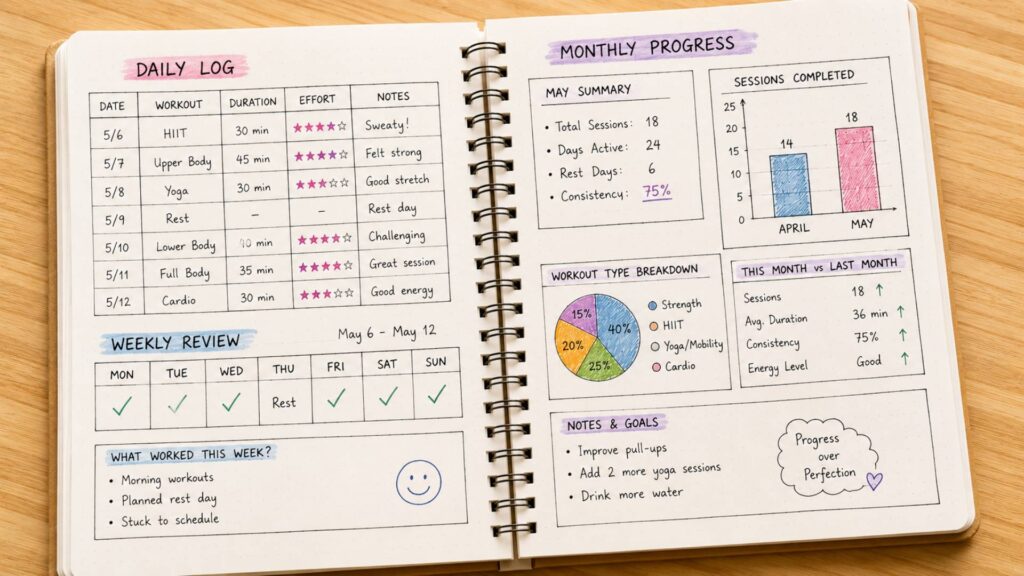 DAILY LOG
DATE WORKOUT DURATION EFFORT NOTES
5/6 HIIT 30 min ★★★★☆ Sweaty!
5/7 Upper Body 45 min ★★★★☆ Felt strong
5/8 Yoga 30 min ★★★☆☆ Good stretch
5/9 Rest – – Rest day
5/10 Lower Body 40 min ★★★★☆ Challenging
5/11 Full Body 35 min ★★★★☆ Great session
5/12 Cardio 30 min ★★★☆☆ Good energy
WEEKLY REVIEW May 6 – May 12
MON TUE WED THU FRI SAT SUN
✓ ✓ ✓ Rest ✓ ✓ ✓
WHAT WORKED THIS WEEK?
• Morning workouts
• Planned rest day
• Stuck to schedule
MONTHLY PROGRESS
MAY SUMMARY
• Total Sessions: 18
• Days Active: 24
• Rest Days: 6
• Consistency: 75%
SESSIONS COMPLETED
25
20
15
10
5
0
14
18
APRIL MAY
WORKOUT TYPE BREAKDOWN
15%
40%
20%
25%
Strength
HIIT
Yoga/Mobility
Cardio
THIS MONTH vs LAST MONTH
Sessions 18 ↑
Avg. Duration 36 min ↑
Consistency 75% ↑
Energy Level Good ↑
NOTES & GOALS
• Improve pull-ups
• Add 2 more yoga sessions
• Drink more water
Progress
over
Perfection